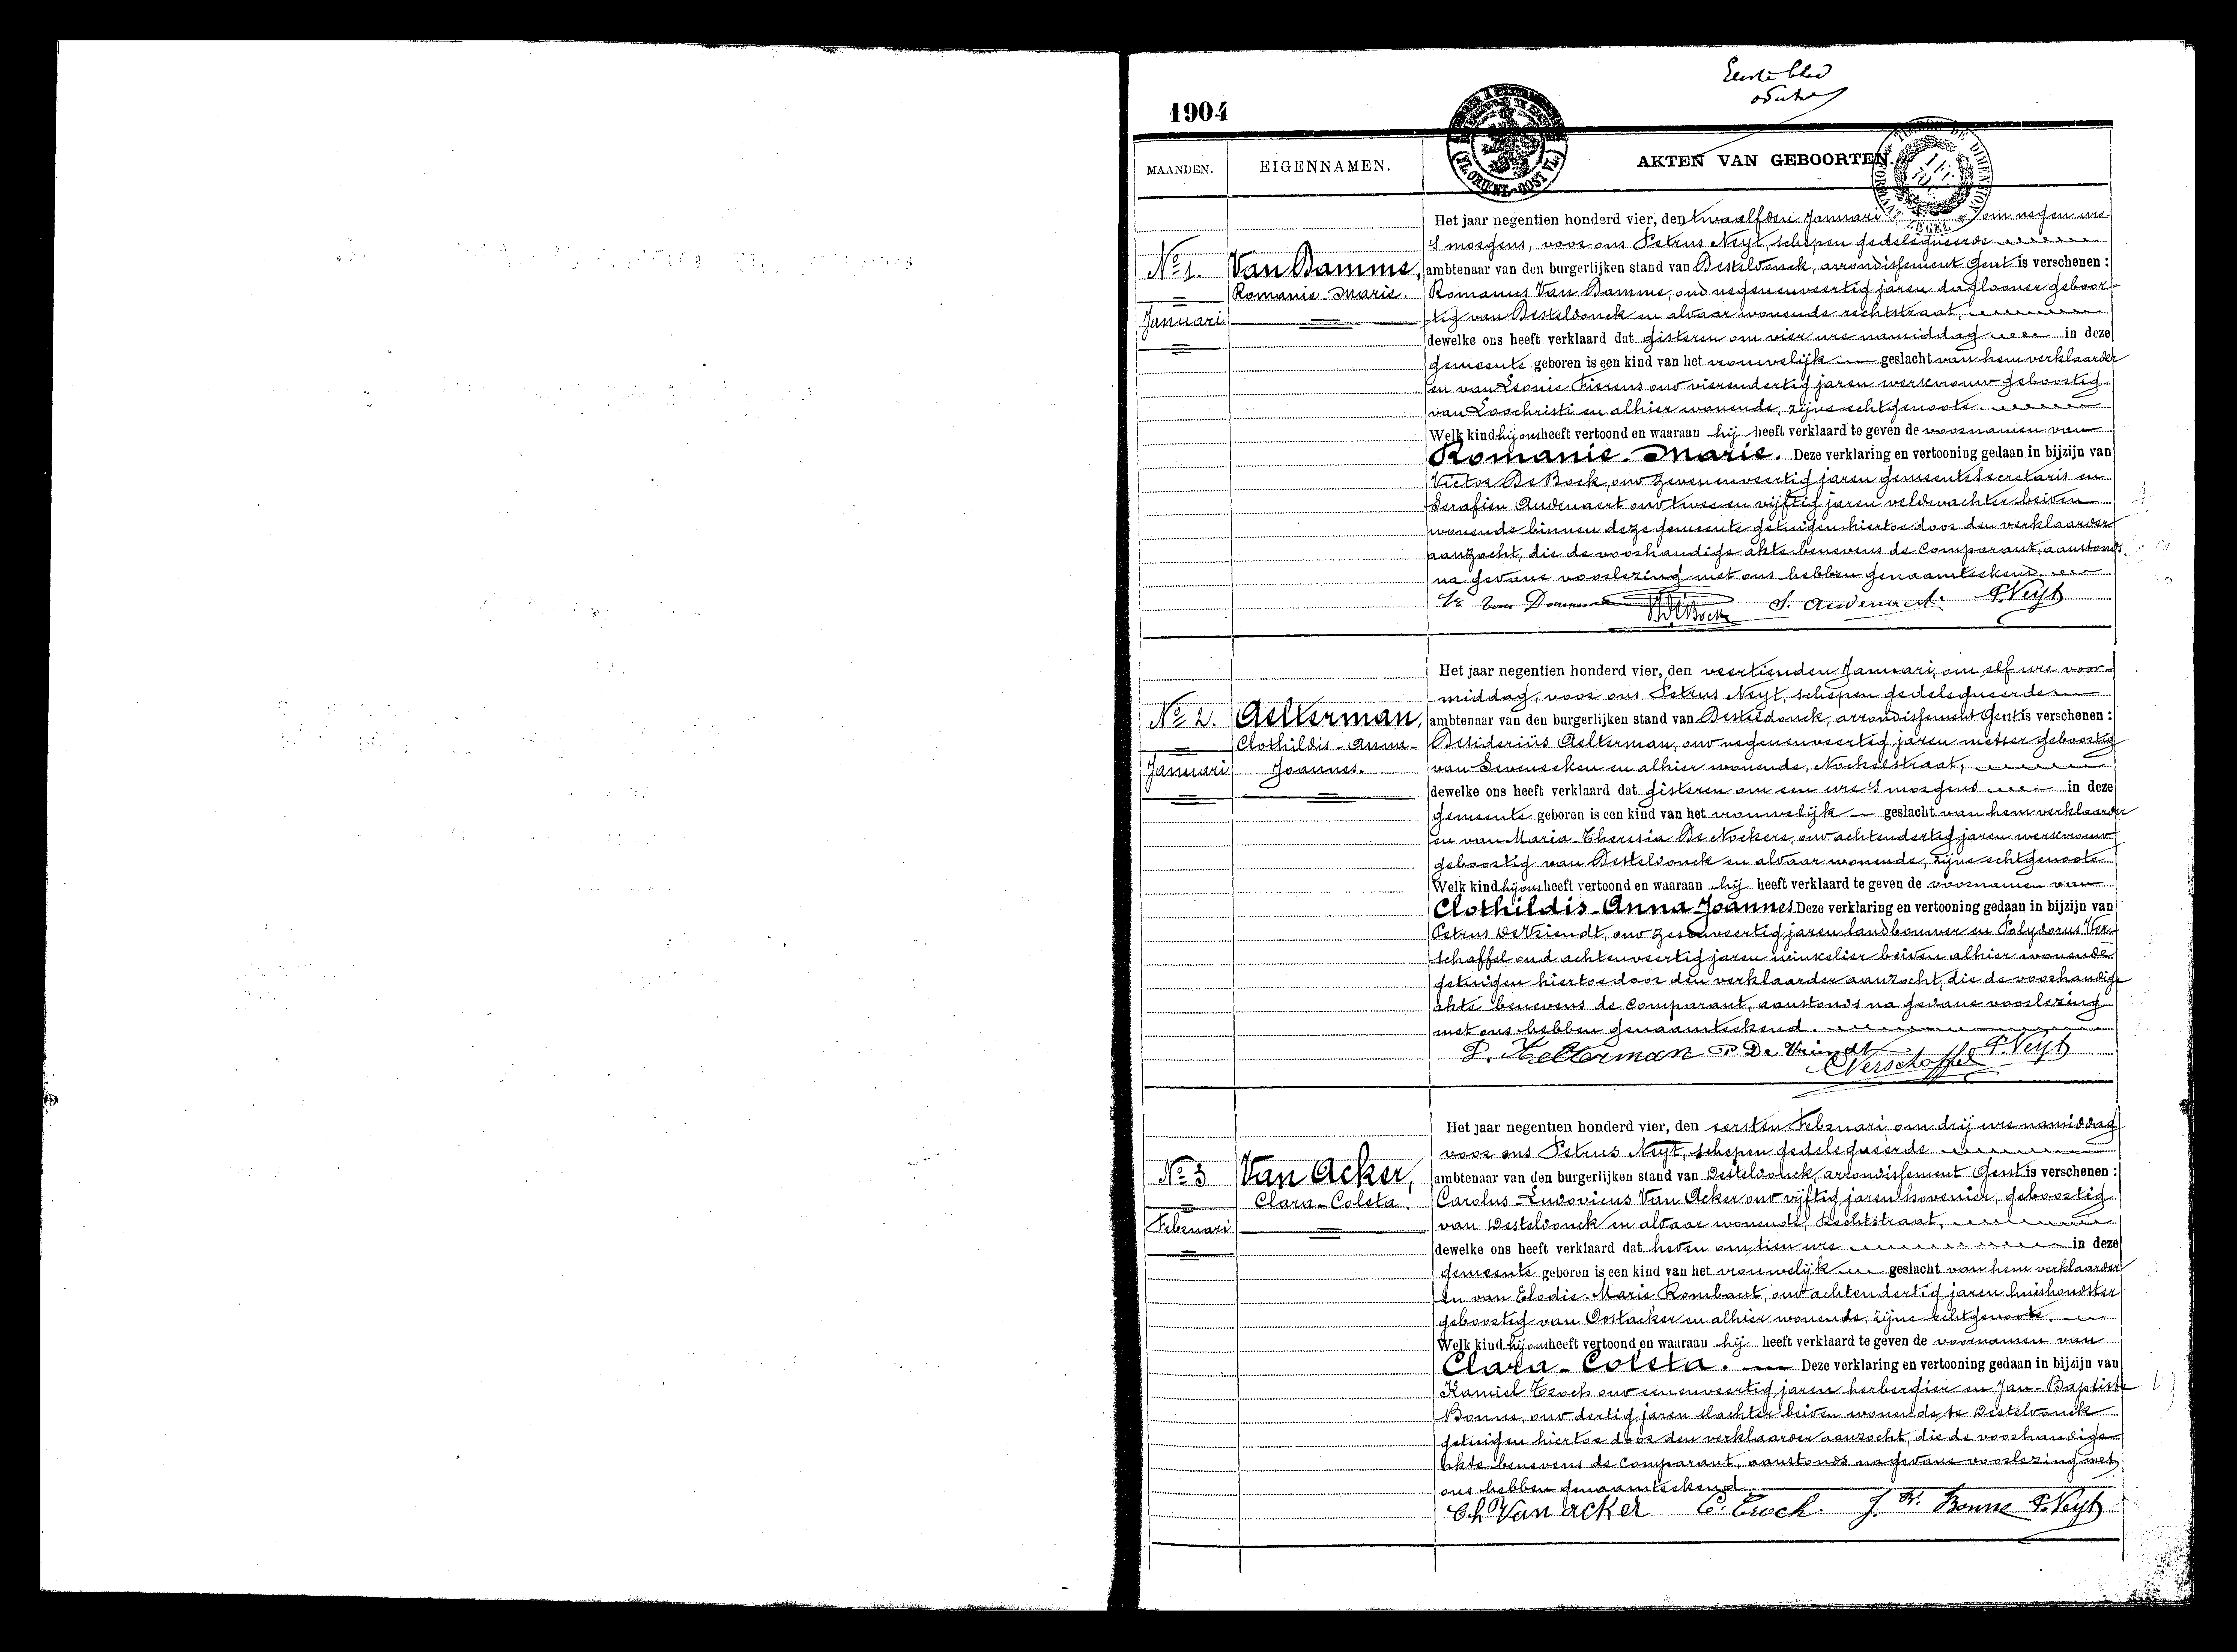 Eerste blad
1904
MAANDEN. EIGENNAMEN. AKTEN VAN GEBOORTEN.
Het jaar negentien honderd vier, den twaalfden Januari om negen ure
'S morgens, voor ons Petrus Neyt, schepen gedelegueerde
No 1. Van Damme, ambtenaar van den burgerlijken stand van Desteldonck, arrondissement Gent is verschenen :
Romanie-Marie. Romanus Van Damme, oud negenenveertig jaren daglooner geboor-
Januari tig van Desteldonck en aldaar wonende rechtstraat,
dewelke ons heeft verklaard dat gisteren om vier ure namiddag in deze
gemeente geboren is een kind van het vrouwelijk geslacht van hem verklaarder
en van Leonie Fierens oud vierendertig jaren werkvrouw geboortig
van Loochristi en alhier wonende, zijne echtgenoote.
Welk kind hij ons heeft vertoond en waaraan hij heeft verklaard te geven de voornamen van
Romanie-Marie. Deze verklaring en vertooning gedaan in bijzijn van
Victor De Bock, oud zevenenveertig jaren gemeentesecretaris en
Serafien Audenaert oud twee en vijftig jaren veldwachter beiden
wonende binnen deze gemeente getuigen hiertoe door den verklaarder
aanzocht, die de voorhandige akte benevens de Comparant, aanstonds
na gedane voorlezing met ons hebben genaamteekend.
Van Damme VDeBock S. Audenaert. P. Neyt
Het jaar negentien honderd vier, den veertienden Januari, om elf ure voor-
middag, voor ons Petrus Neyt, schepen gedelegueerde
No 2. Aelterman, ambtenaar van den burgerlijken stand van Desteldonck, arrondissement Gent is verschenen :
Clothildis-Anna- Desiderius Aelterman, oud negenenveertig jaren metser geboortig
Januari Joannes. van Seveneeken en alhier wonende, Nockelstraat,
dewelke ons heeft verklaard dat gisteren om een ure 'S morgens in deze
gemeente geboren is een kind van het vrouwelijk geslacht van hem verklaarder
en van Maria-Theresia De Nockere, oud achtendertig jaren werkvrouw
geboortig van Desteldonck en aldaar wonende, zijne echtgenoote
Welk kind hij ons heeft vertoond en waaraan hij heeft verklaard te geven de voornamen van
Clothildis-Anna-Joannes. Deze verklaring en vertooning gedaan in bijzijn van
Petrus De Vriendt, oud zesenveertig jaren landbouwer en Polydorus Ver-
schaffel oud achtenveertig jaren winkelier beiden alhier wonende
getuigen hiertoe door den verklaarder aanzocht, die de voorhandige
akte benevens de Comparant, aanstonds na gedane voorlezing
met ons hebben genaamteekend.
D. Aelterman P. De Vriendt P. Neyt
Verschaffel
Het jaar negentien honderd vier, den eersten Februari om drij ure namiddag
voor ons Petrus Neyt, schepen gedelegueerde
No 3 Van Acker, ambtenaar van den burgerlijken stand van Desteldonck, arrondissement Gent is verschenen :
Clara-Coleta. Carolus-Ludovicus Van Acker oud vijftig jaren hovenier, geboortig
Februari van Desteldonck en aldaar wonende, Rechtstraat,
dewelke ons heeft verklaard dat heden om tien ure in deze
gemeente geboren is een kind van het vrouwelijk geslacht van hem verklaarder
en van Elodie-Marie Rombaut, oud achtendertig jaren huishoudster
geboortig van Oostacker en alhier wonende, zijne echtgenoote.
Welk kind hij ons heeft vertoond en waaraan hij heeft verklaard te geven de voornamen van
Clara-Coleta. Deze verklaring en vertooning gedaan in bijzijn van
Kamiel Troch oud eenenveertig jaren herbergier en Jan-Baptiste
Bonne, oud dertig jaren slachter beiden wonende te Desteldonck
getuigen hiertoe door den verklaarder aanzocht, die de voorhandige
akte benevens de Comparant, aanstonds na gedane voorlezing met
ons hebben genaamteekend
Ch Van acker C. Troch. J. B. Bonne P. Neyt